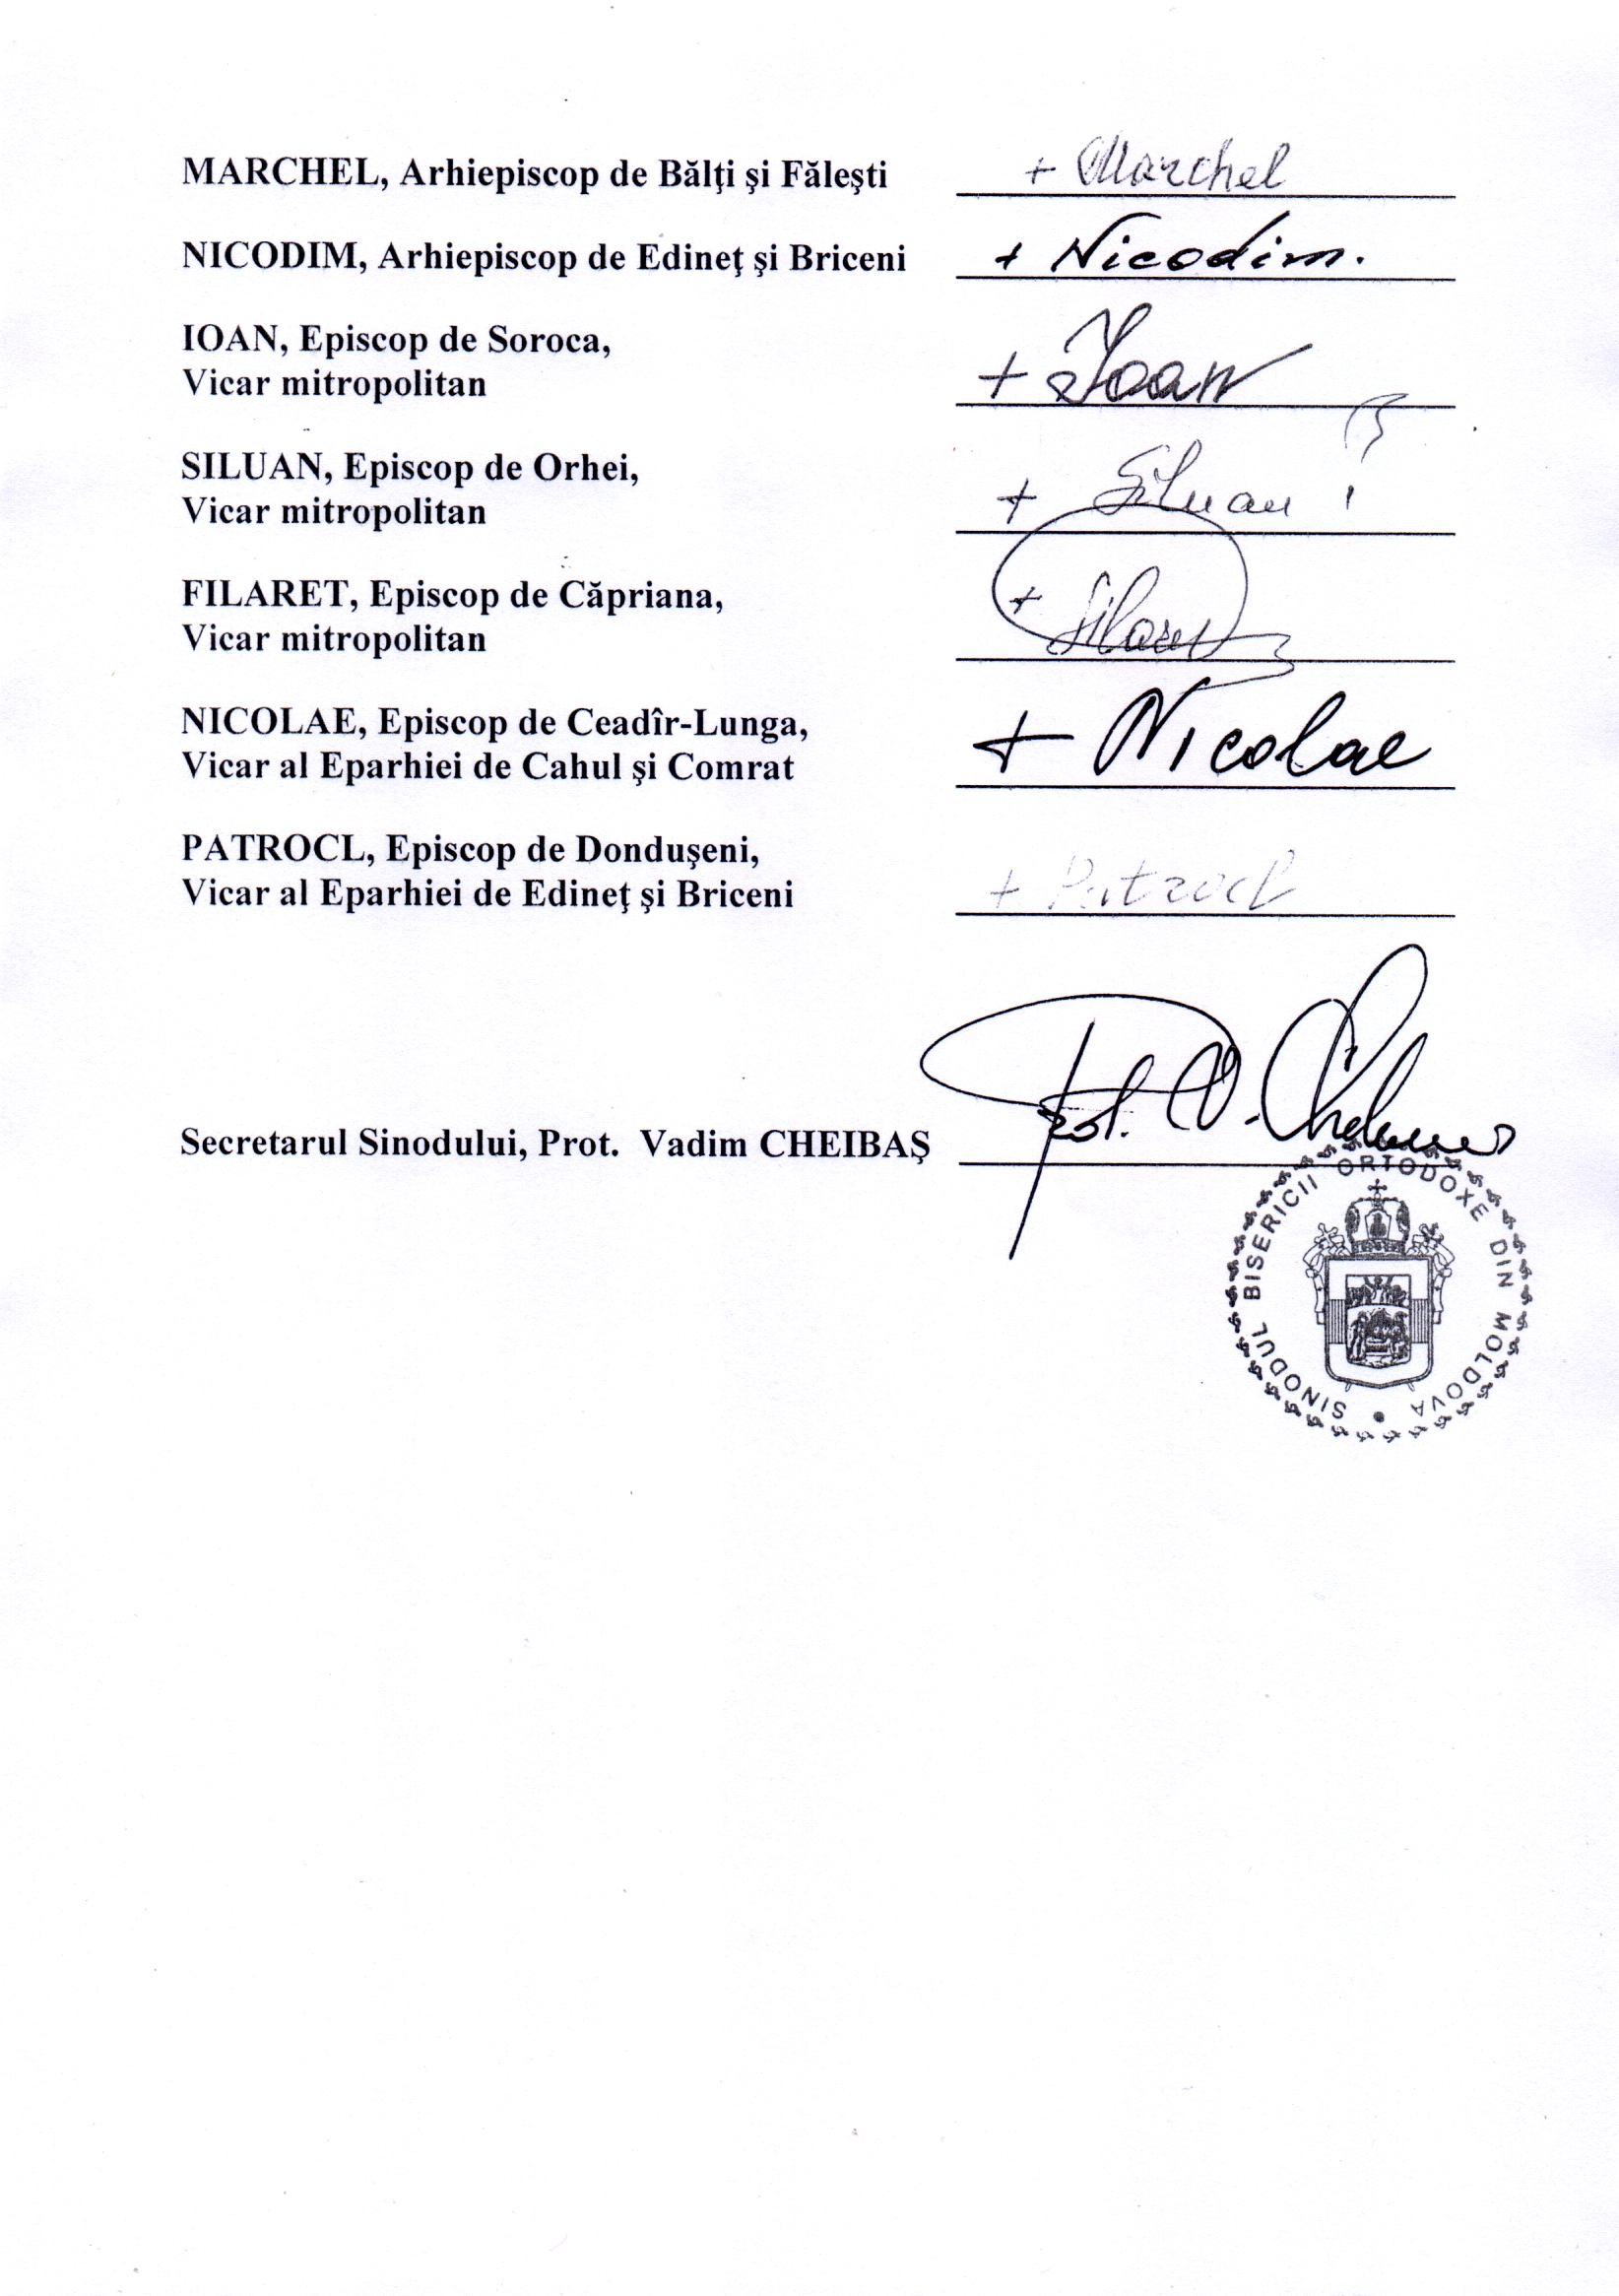 MARCHEL, Arhiepiscop de Bălţi şi Făleşti + Marchel
NICODIM, Arhiepiscop de Edineţ şi Briceni + Nicodim.
IOAN, Episcop de Soroca,
Vicar mitropolitan + Ioan
SILUAN, Episcop de Orhei,
Vicar mitropolitan + Siluan
FILARET, Episcop de Căpriana,
Vicar mitropolitan + Filaret
NICOLAE, Episcop de Ceadîr-Lunga,
Vicar al Eparhiei de Cahul şi Comrat + Nicolae
PATROCL, Episcop de Donduşeni,
Vicar al Eparhiei de Edineţ şi Briceni + Patrocl
Secretarul Sinodului, Prot. Vadim CHEIBAŞ Prot. V.
SINODUL BISERICII ORTODOXE DIN MOLDOVA